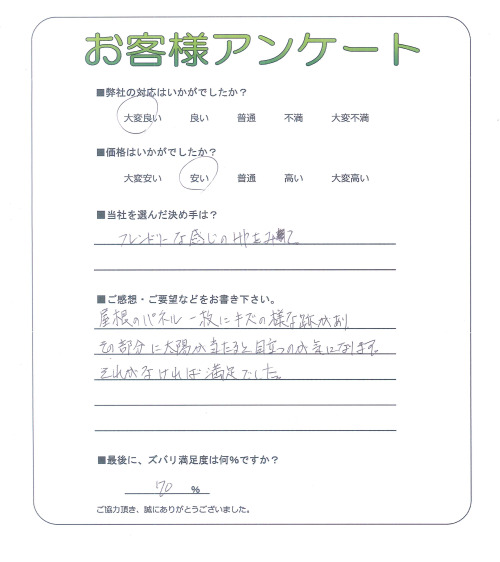 お客様アンケート
■弊社の対応はいかがでしたか？
大変良い 良い 普通 不満 大変不満
■価格はいかがでしたか？
大変安い 安い 普通 高い 大変高い
■当社を選んだ決め手は？
フレンドリーな感じのHPをみて
■ご感想・ご要望などをお書き下さい。
屋根のパネル一枚にキズの様な跡があり
その部分に太陽が当たると目立つのが気になります。
それがなければ満足でした。
■最後に、ズバリ満足度は何％ですか？
70 ％
ご協力頂き、誠にありがとうございました。